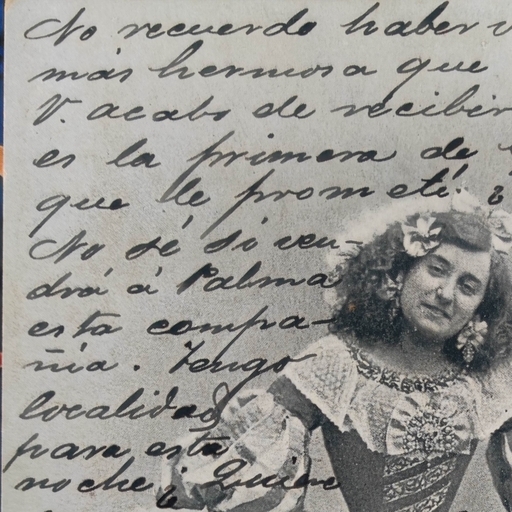 No recuerdo haber
más hermosa que
V. acabo de recibir
es la primera de
que le prometí. ¿
No sé si ven-
drá á Palma
esta compa-
ñia. Tengo
localidad
para esta
noche; ¿Quiere